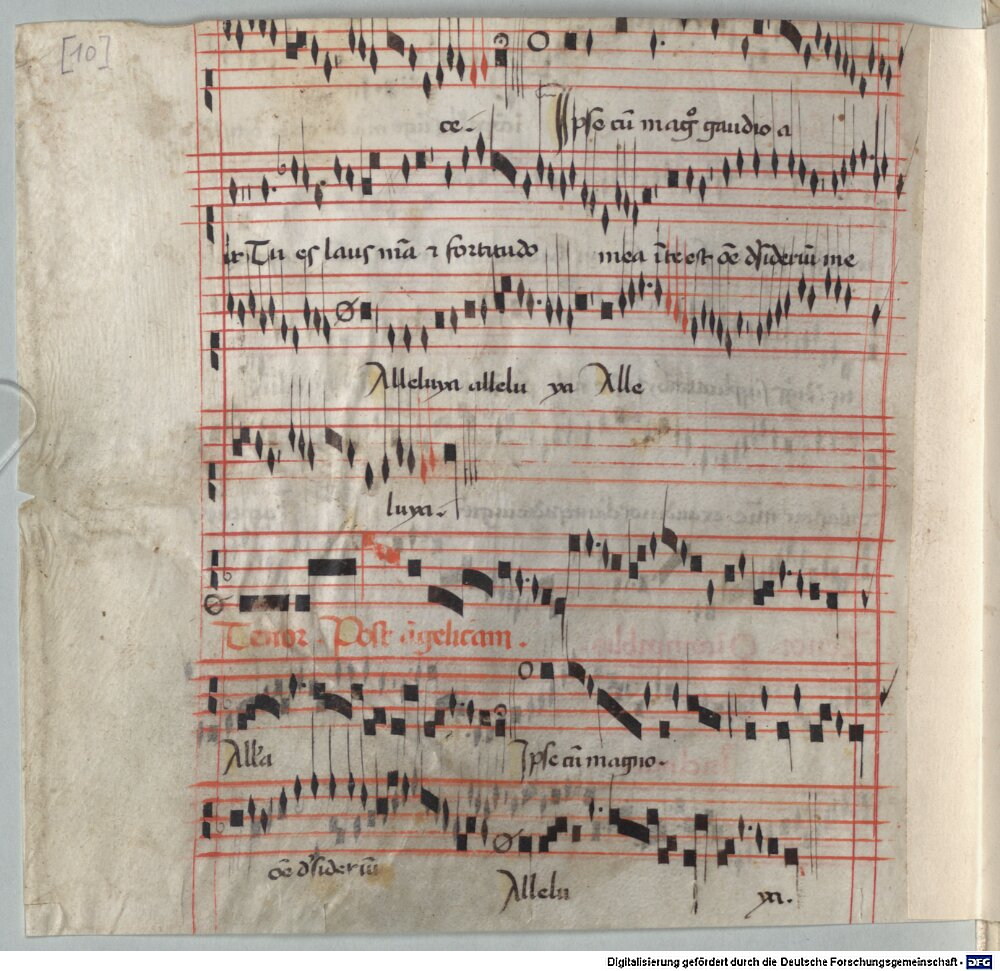 [10]
ce. Ipse cū magº gaudio a
it Tu es laus m̄a ⁊ fortitudo mea ī te est oē dʼsideriū me
Alleluya allelu ya Alle
luya.
Tenor. Post āgelicam.
All'a Ipse cū magno.
oē dʼsideriū
Allelu ya.
Digitalisierung gefördert durch die Deutsche Forschungsgemeinschaft - DFG